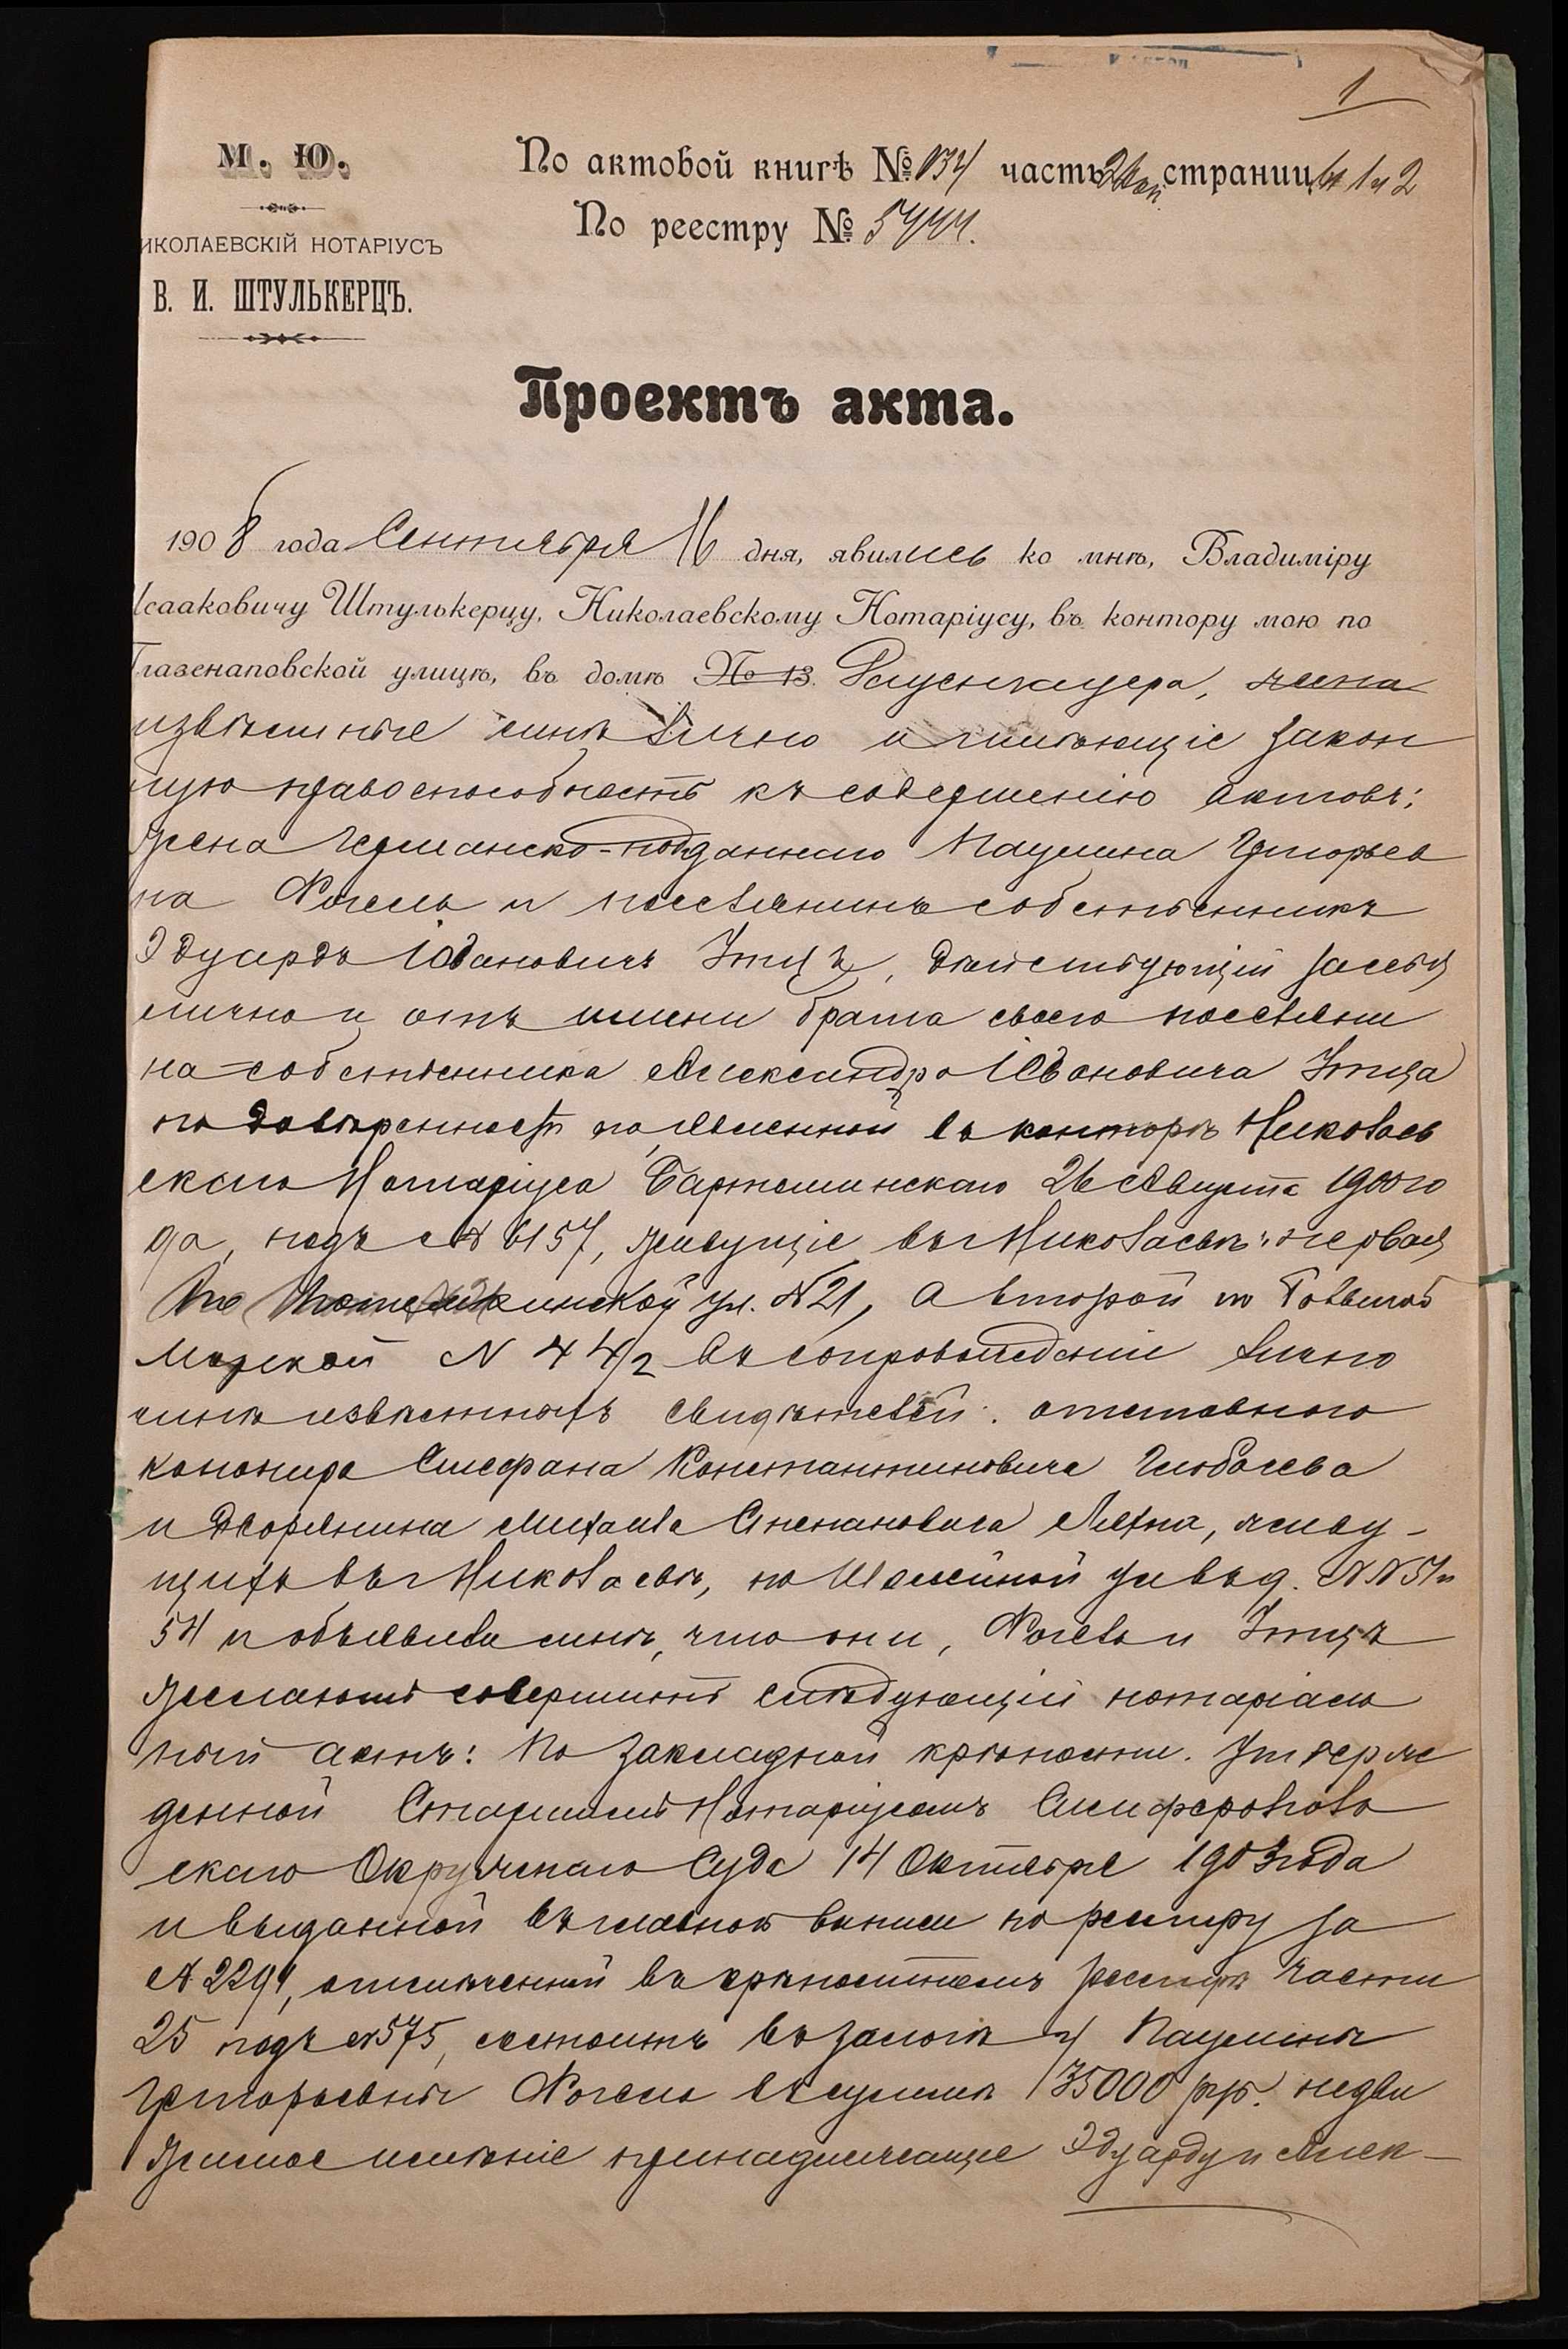 1
М. Ю.
По актовой книгѣ № 134 часть 2ой страницы 1 и 2
По реестру №
ИКОЛАЕВСКІЙ НОТАРІУСЪ
В. И. ШТУЛЬКЕРЦЪ.
Проектъ акта.
1908 года Сентября 16 дня, явились ко мнѣ, Владиміру
Исааковичу Штулькерцу, Николаевскому Нотаріусу, въ контору мою по
Глазенаповской улицѣ, въ домѣ № 13
извѣстные мнѣ лично и имѣющіе закон
ную правоспособность къ совершенію актовъ:
жена Германско-подданнаго Паулина Григорьев
на Фогель и поселянинъ собственникъ
Эдуардъ Ивановичъ Утцъ, дѣйствующій за себя
лично и отъ имени брата своего поселяни
на-собственника Александра Ивановича Утца
по довѣренности явленной въ конторѣ Николаев
скаго Нотаріуса 26 Августа 1900 го
да, подъ № 6157, живущіе въ г Николаевѣ: первая
По ул. № 21, а второй по
Морской N 44/2 въ сопровожденіи лично
мнѣ извѣстныхъ свидѣтелей: отставного
канонира Стефана Константиновича
и дворянина Михаила Степановича живу-
щихъ въ г Николаевѣ, по
54 и объявили мнѣ, что они, Фогель и Утцъ
желаютъ совершить слѣдующій нотаріаль
ный актъ: По закладной крѣпости. Утверж
денной Старшимъ Нотаріусомъ Симферополь
скаго Окружнаго Суда 14 Октября 1903 года
и выданной въ главной выписи по реестру за
№ отмѣченной въ крѣпостномъ реестрѣ части
25 подъ № 575, состоитъ въ залогѣ у Паулины
Григорьевны Фогель въ суммѣ 35000 рур. недви
жимое имѣніе принадлежащее Эдуарду и Алек-